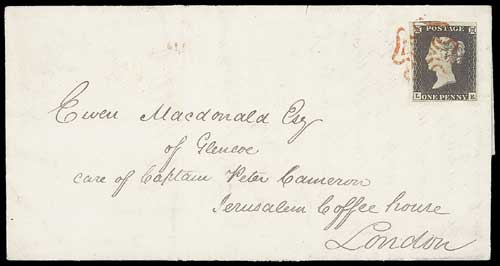 POSTAGE
L E
ONE PENNY
Ewen Macdonald Esq
of Glencoe
care of Captain Peter Cameron
Jerusalem Coffee house
London